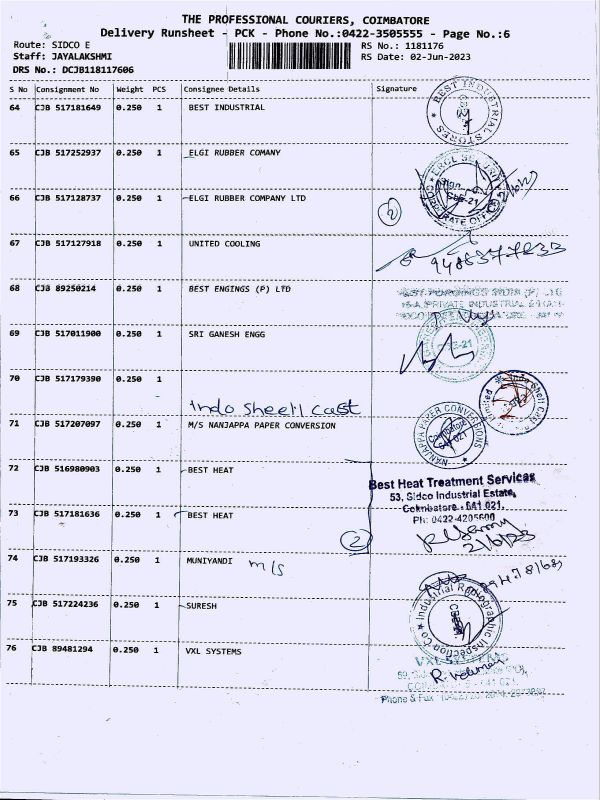 THE PROFESSIONAL COURIERS, COIMBATORE
Delivery Runsheet - PCK - Phone No.:0422-3505555 - Page No.:6
Route: SIDCO E
RS No.: 1181176
Staff: JAYALAKSHMI
RS Date: 02-Jun-2023
DRS No.: DCJB118117606
S No Consignment No Weight PCS Consignee Details Signature
64 CJB 517181649 0.250 1 BEST INDUSTRIAL
BEST INDUSTRIAL STORES
65 CJB 517252937 0.250 1 ELGI RUBBER COMANY
66 CJB 517128737 0.250 1 ELGI RUBBER COMPANY LTD
CORPORATE OFFICE
2
67 CJB 517127918 0.250 1 UNITED COOLING
68 CJB 89250214 0.250 1 BEST ENGINGS (P) LTD
69 CJB 517011900 0.250 1 SRI GANESH ENGG
70 CJB 517179390 0.250 1
Indo Sheell Cast
71 CJB 517207097 0.250 1 M/S NANJAPPA PAPER CONVERSION
NANJAPPA PAPER CONVERSIONS
72 CJB 516980903 0.250 1 BEST HEAT
Best Heat Treatment Services
53, Sidco Industrial Estate,
Coimbatore - 641 021.
Ph: 0422-4205600
73 CJB 517181636 0.250 1 BEST HEAT
2
2/6/23
74 CJB 517193326 0.250 1 MUNIYANDI M/S
75 CJB 517224236 0.250 1 SURESH
Industrial Radiographic Inspection Co
76 CJB 89481294 0.250 1 VXL SYSTEMS
VXL SYSTEMS
R. Velumani
Phone & Fax